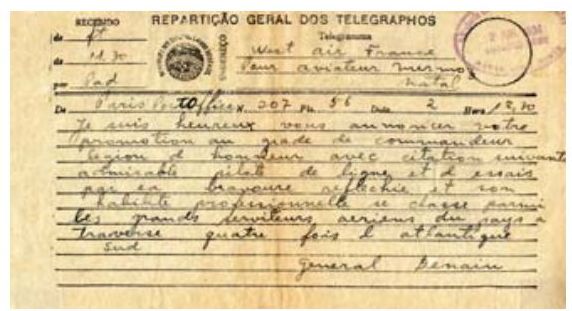 RECEBIDO
REPARTIÇÃO GERAL DOS TELEGRAPHOS
de ft
Telegramma
West air France
de 11.30
Pour aviateur mermoz
por Pad
natal
De Paris Post Office N. 207 Pls. 56 Data 2 Hora 12,30
Je suis heureux vous annoncer votre
promotion au grade de commandeur
legion d honneur avec citation suivante
admirable pilote de ligne et d essais
par sa bravoure reflechie et son
habilite professionnelle se classe parmi
les grands serviteurs aeriens du pays a
traverse quatre fois l atlantique
sud
general Denain